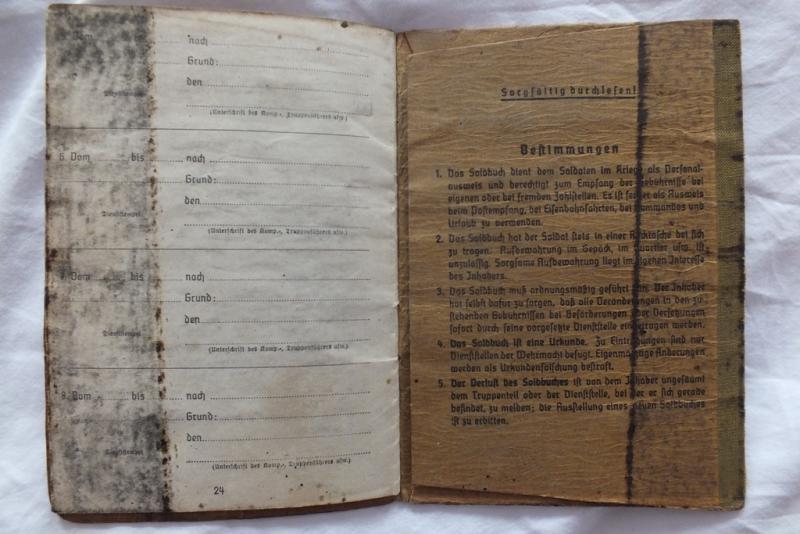 nach
Grund:
den
Dienststempel
(Unterschrift des Komp.-, Truppenführers usw.)
6. Vom bis nach
Grund:
den
Dienststempel
(Unterschrift des Komp.-, Truppenführers usw.)
7. Vom bis nach
Grund:
den
Dienststempel
(Unterschrift des Komp.-, Truppenführers usw.)
8. Vom bis nach
Grund:
den
Dienststempel
(Unterschrift des Komp.-, Truppenführers usw.)
24
Sorgfältig durchlesen!
Bestimmungen
1. Das Soldbuch dient dem Soldaten im Kriege als Personal-
ausweis und berechtigt zum Empfang der Gebührnisse bei
eigenen oder bei fremden Zahlstellen. Es ist ferner als Ausweis
beim Postempfang, bei Eisenbahnfahrten, bei Kommandos und
Urlaub zu verwenden.
2. Das Soldbuch hat der Soldat stets in einer Rocktasche bei sich
zu tragen. Aufbewahrung im Gepäck, im Quartier usw. ist
unzulässig. Sorgsame Aufbewahrung liegt im eigenen Interesse
des Inhabers.
3. Das Soldbuch muß ordnungsmäßig geführt sein. Der Inhaber
hat selbst dafür zu sorgen, daß alle Veränderungen in den zu-
stehenden Gebührnissen bei Beförderungen oder Versetzungen
sofort durch seine vorgesetzte Dienststelle eingetragen werden.
4. Das Soldbuch ist eine Urkunde. Zu Eintragungen sind nur
Dienststellen der Wehrmacht befugt. Eigenmächtige Änderungen
werden als Urkundenfälschung bestraft.
5. Der Verlust des Soldbuches ist von dem Inhaber ungesäumt
dem Truppenteil oder der Dienststelle, bei der er sich gerade
befindet, zu melden; die Ausstellung eines neuen Soldbuches
ist zu erbitten.